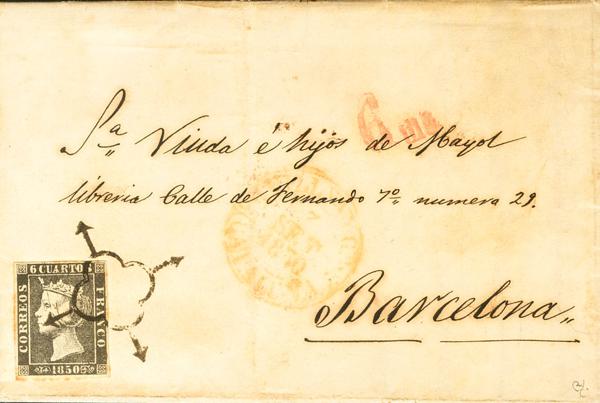 Sª Viuda é hijos de Mayol
libreria Calle de Fernando 7º numero 29.
Barcelona
6 CUARTOS
CORREOS
FRANCO
1850